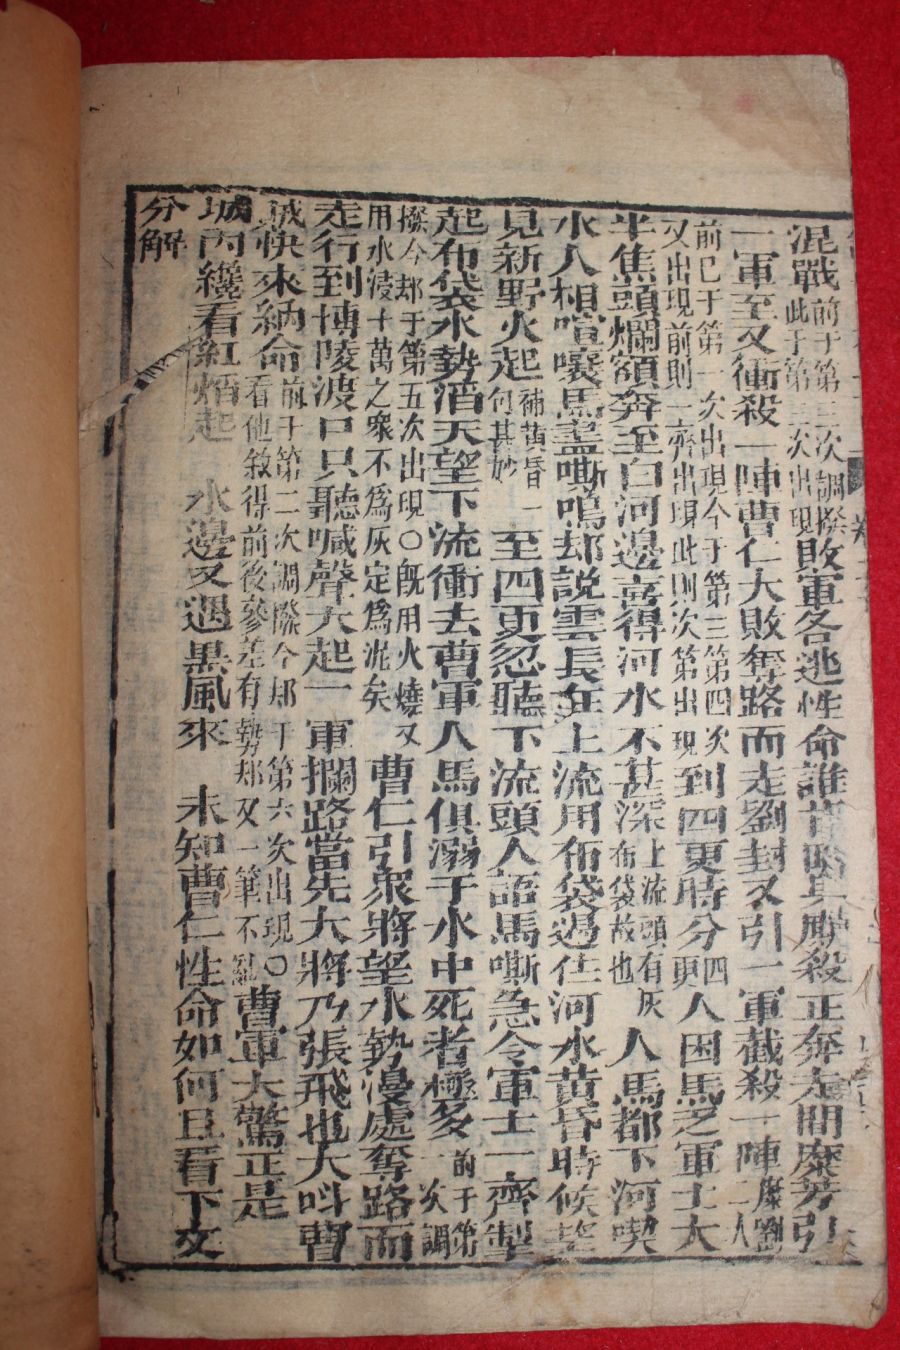 混戰前于第三次調撥此于第二次出現敗軍各逃性命誰肯厮殺正奔走間糜芳引
一軍至又衝殺一陣曹仁大敗奪路而走劉封又引一軍截殺一陣糜劉二人
前已于第一次出現今于第三第四次又出現前則一齊出現此則次第出現到四更時分四更人困馬乏軍士大
半焦頭爛額奔至白河邊喜得河水不甚深上流頭有灰布袋故也人馬都下河喫
水人相喧嚷馬盡嘶鳴却說雲長在上流用布袋遏住河水黃昏時候望
見新野火起補黃昏一句甚妙至四更忽聽下流頭人語馬嘶急令軍士一齊掣
起布袋水勢滔天望下流衝去曹軍人馬俱溺于水中死者極多前于第一次調
撥今却于第五次出現○旣用火燒又用水浸十萬之衆不爲灰定爲泥矣曹仁引衆將望水勢漫處奪路而
走行到博陵渡口只聽喊聲大起一軍攔路當先大將乃張飛也大呌曹
賊快來納命前于第二次調撥今却于第六次出現○看他敘得前後參差有勢却又一筆不亂曹軍大驚正是
城內纔看紅焰起 水邊又遇黑風來 未知曹仁性命如何且看下文
分解